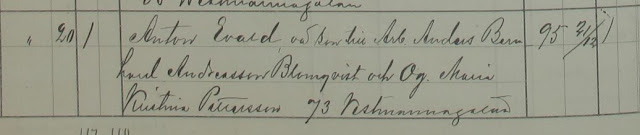 Westmannagatan
" 20 / Anton Evald, oä Son till Arb Anders Bern 95 21/12 /
hard Andreasson Blomqvist och Og. Maria
Kristina Pettersson 73 Westmannagatan